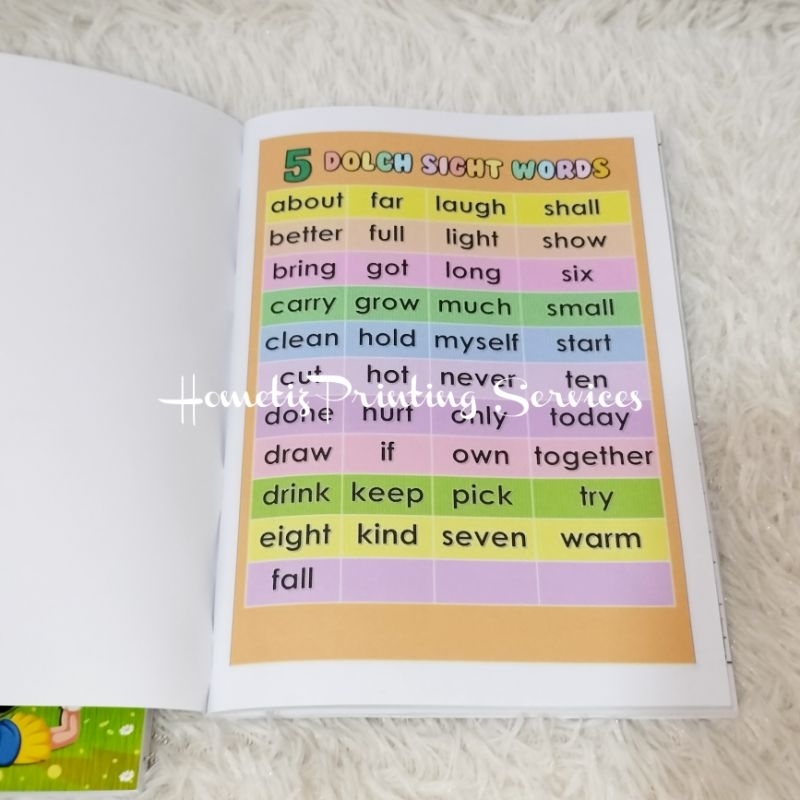 5 DOLCH SIGHT WORDS
about far laugh shall
better full light show
bring got long six
carry grow much small
clean hold myself start
cut hot never ten
Hometiz Printing Services
done hurt only today
draw if own together
drink keep pick try
eight kind seven warm
fall